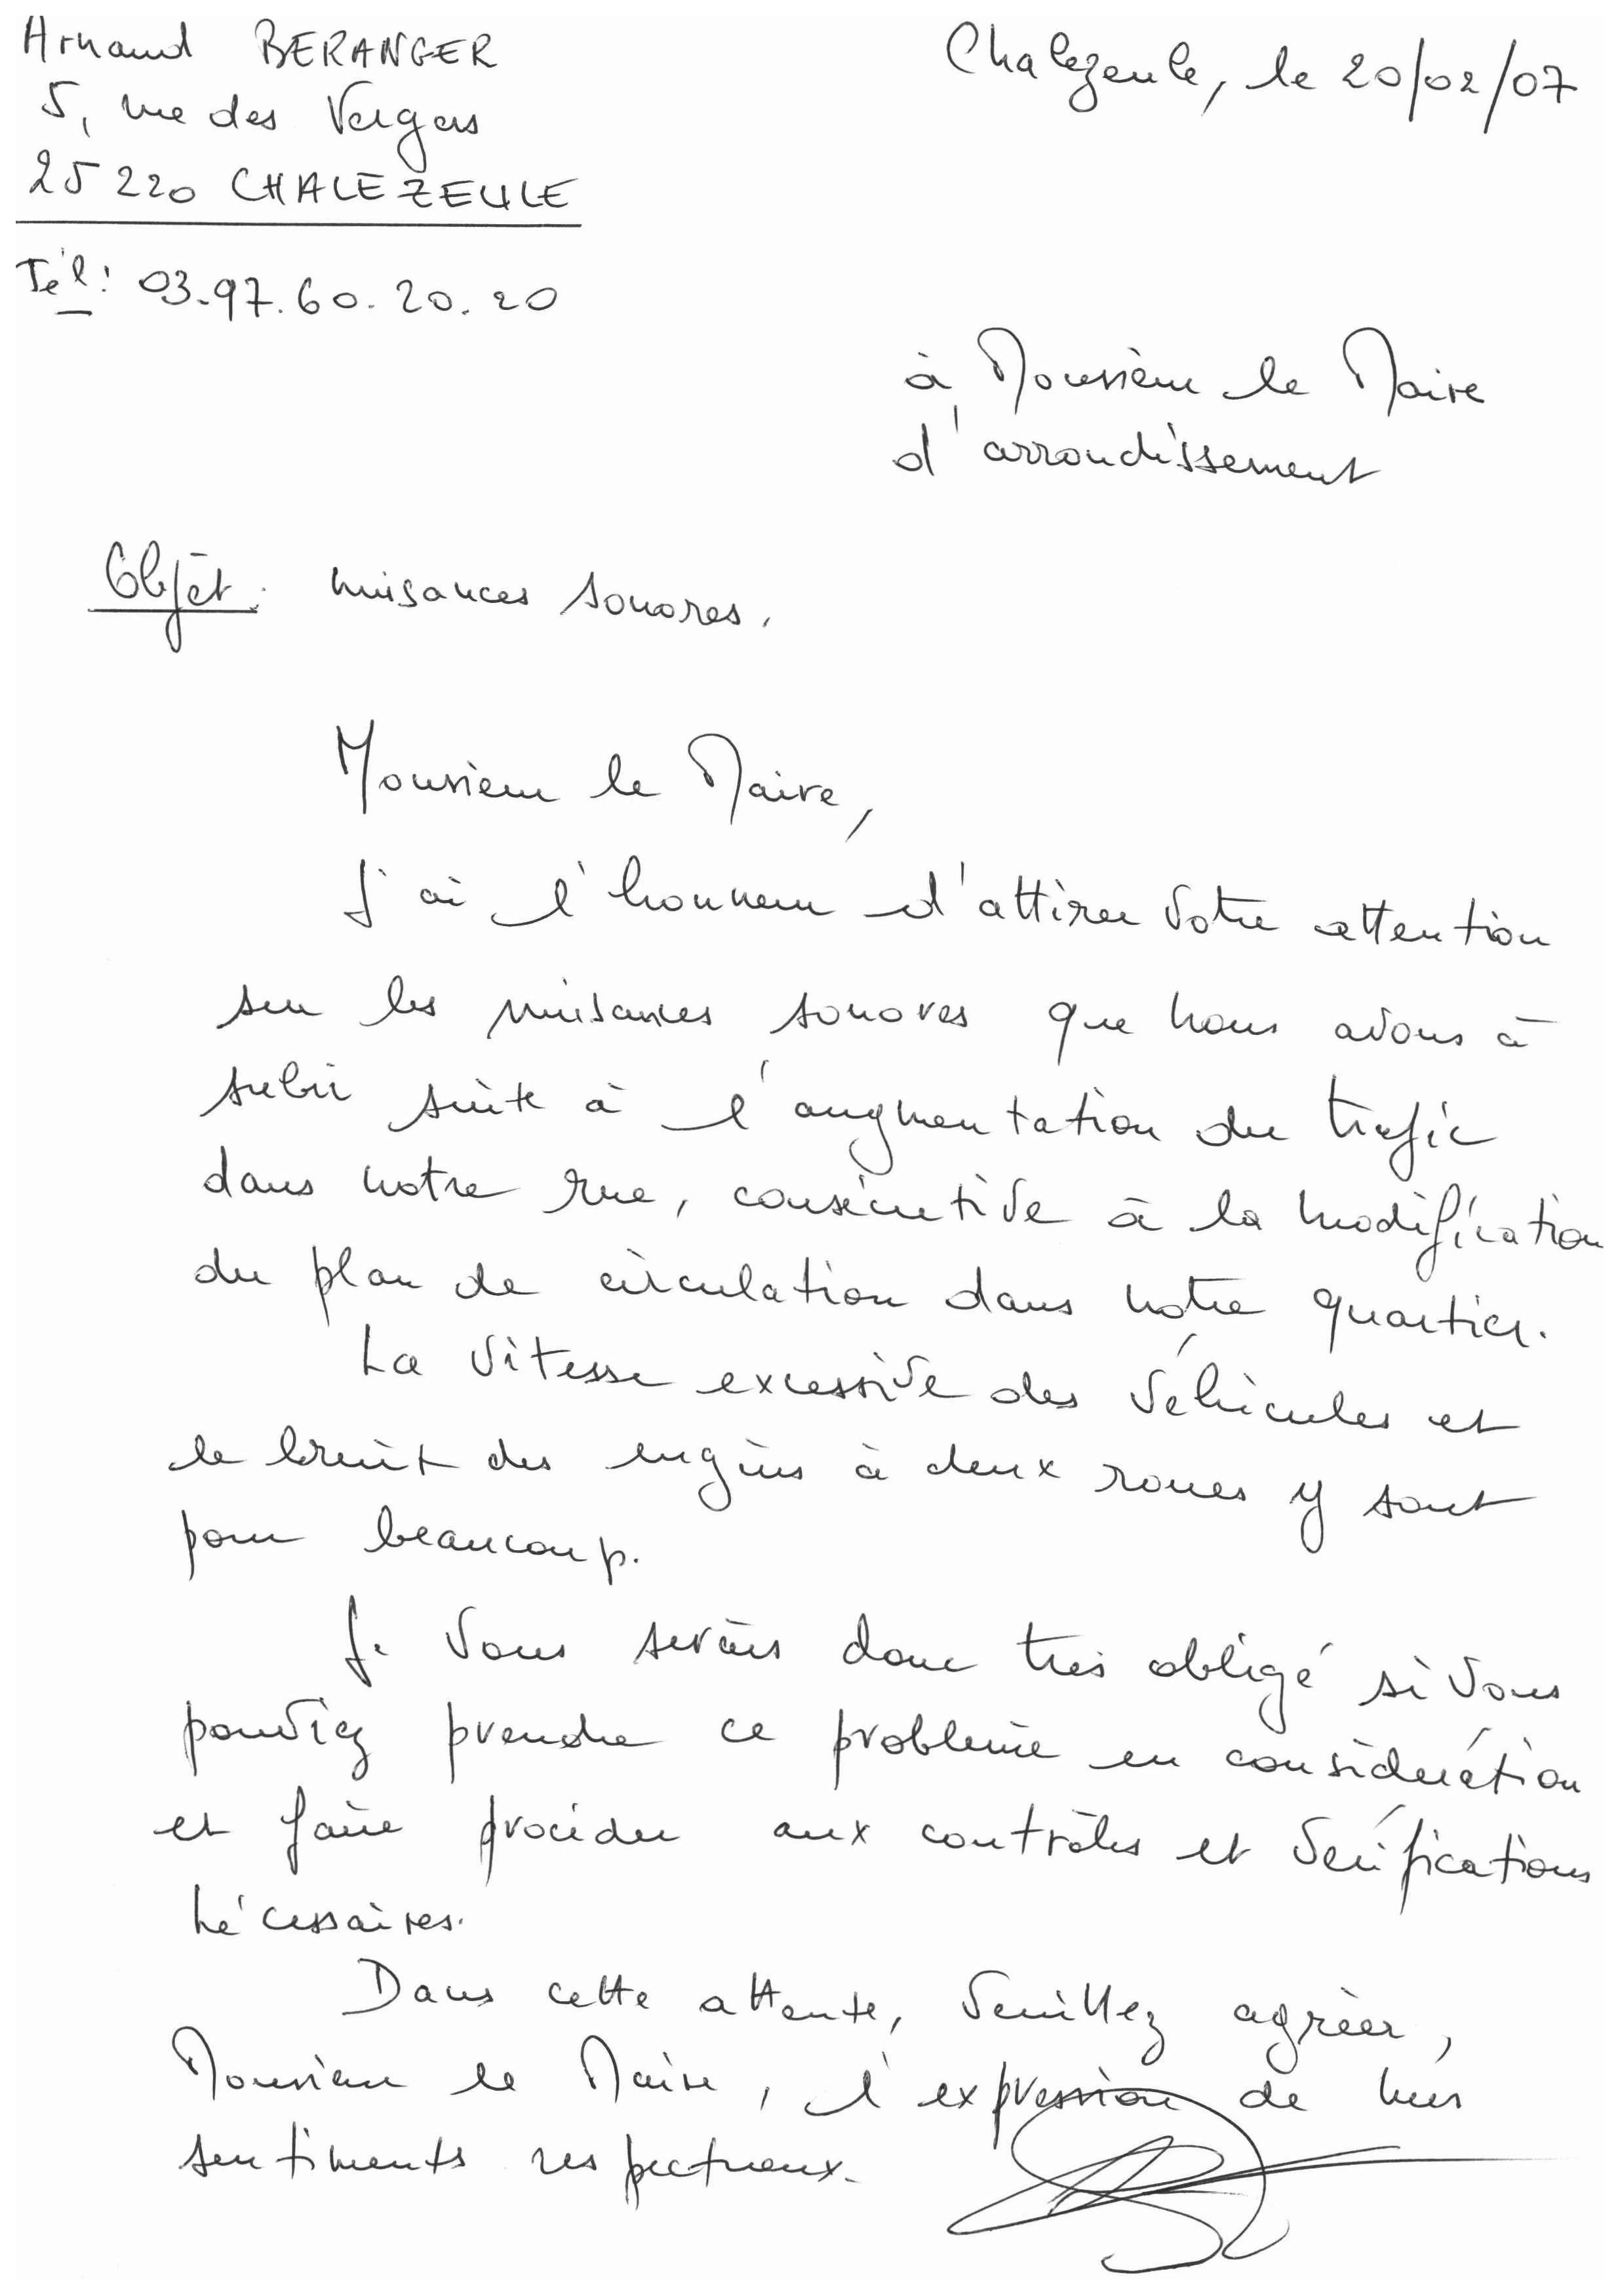 Arnaud BERANGER
5, rue des Vergers
25220 CHALEZEULE
Tél: 03.97.60.20.20
Chalezeule, le 20/02/07
à Monsieur le Maire
d'arrondissement
Objet: nuisances sonores.
Monsieur le Maire,
J'ai l'honneur d'attirer votre attention
sur les nuisances sonores que nous avons à
subir suite à l'augmentation du trafic
dans notre rue, consécutive à la modification
du plan de circulation dans notre quartier.
La vitesse excessive des véhicules et
le bruit des engins à deux roues y sont
pour beaucoup.
Je vous serais donc très obligé si vous
pouviez prendre ce problème en considération
et faire procéder aux contrôles et vérifications
nécessaires.
Dans cette attente, veuillez agréer,
Monsieur le Maire, l'expression de mes
sentiments respectueux.